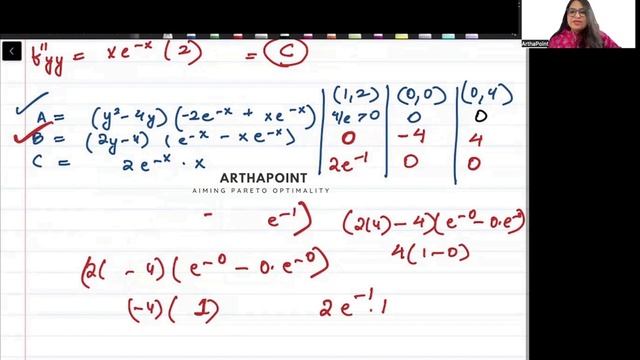 f''yy = xe^-x (2) = C
(1,2) (0,0) (0,4)
A = (y²-4y)(-2e^-x + xe^-x) 4/e > 0 0 0
B = (2y-4)(e^-x - xe^-x) 0 -4 4
C = 2e^-x · x 2e^-1 0 0
ARTHAPOINT
AIMING PARETO OPTIMALITY
- e^-1) (2(4)-4)(e^-0 - 0·e^-0
4(1-0)
(2( -4)(e^-0 - 0·e^-0)
(-4)( 1) 2e^-1·1
ArthaPoint